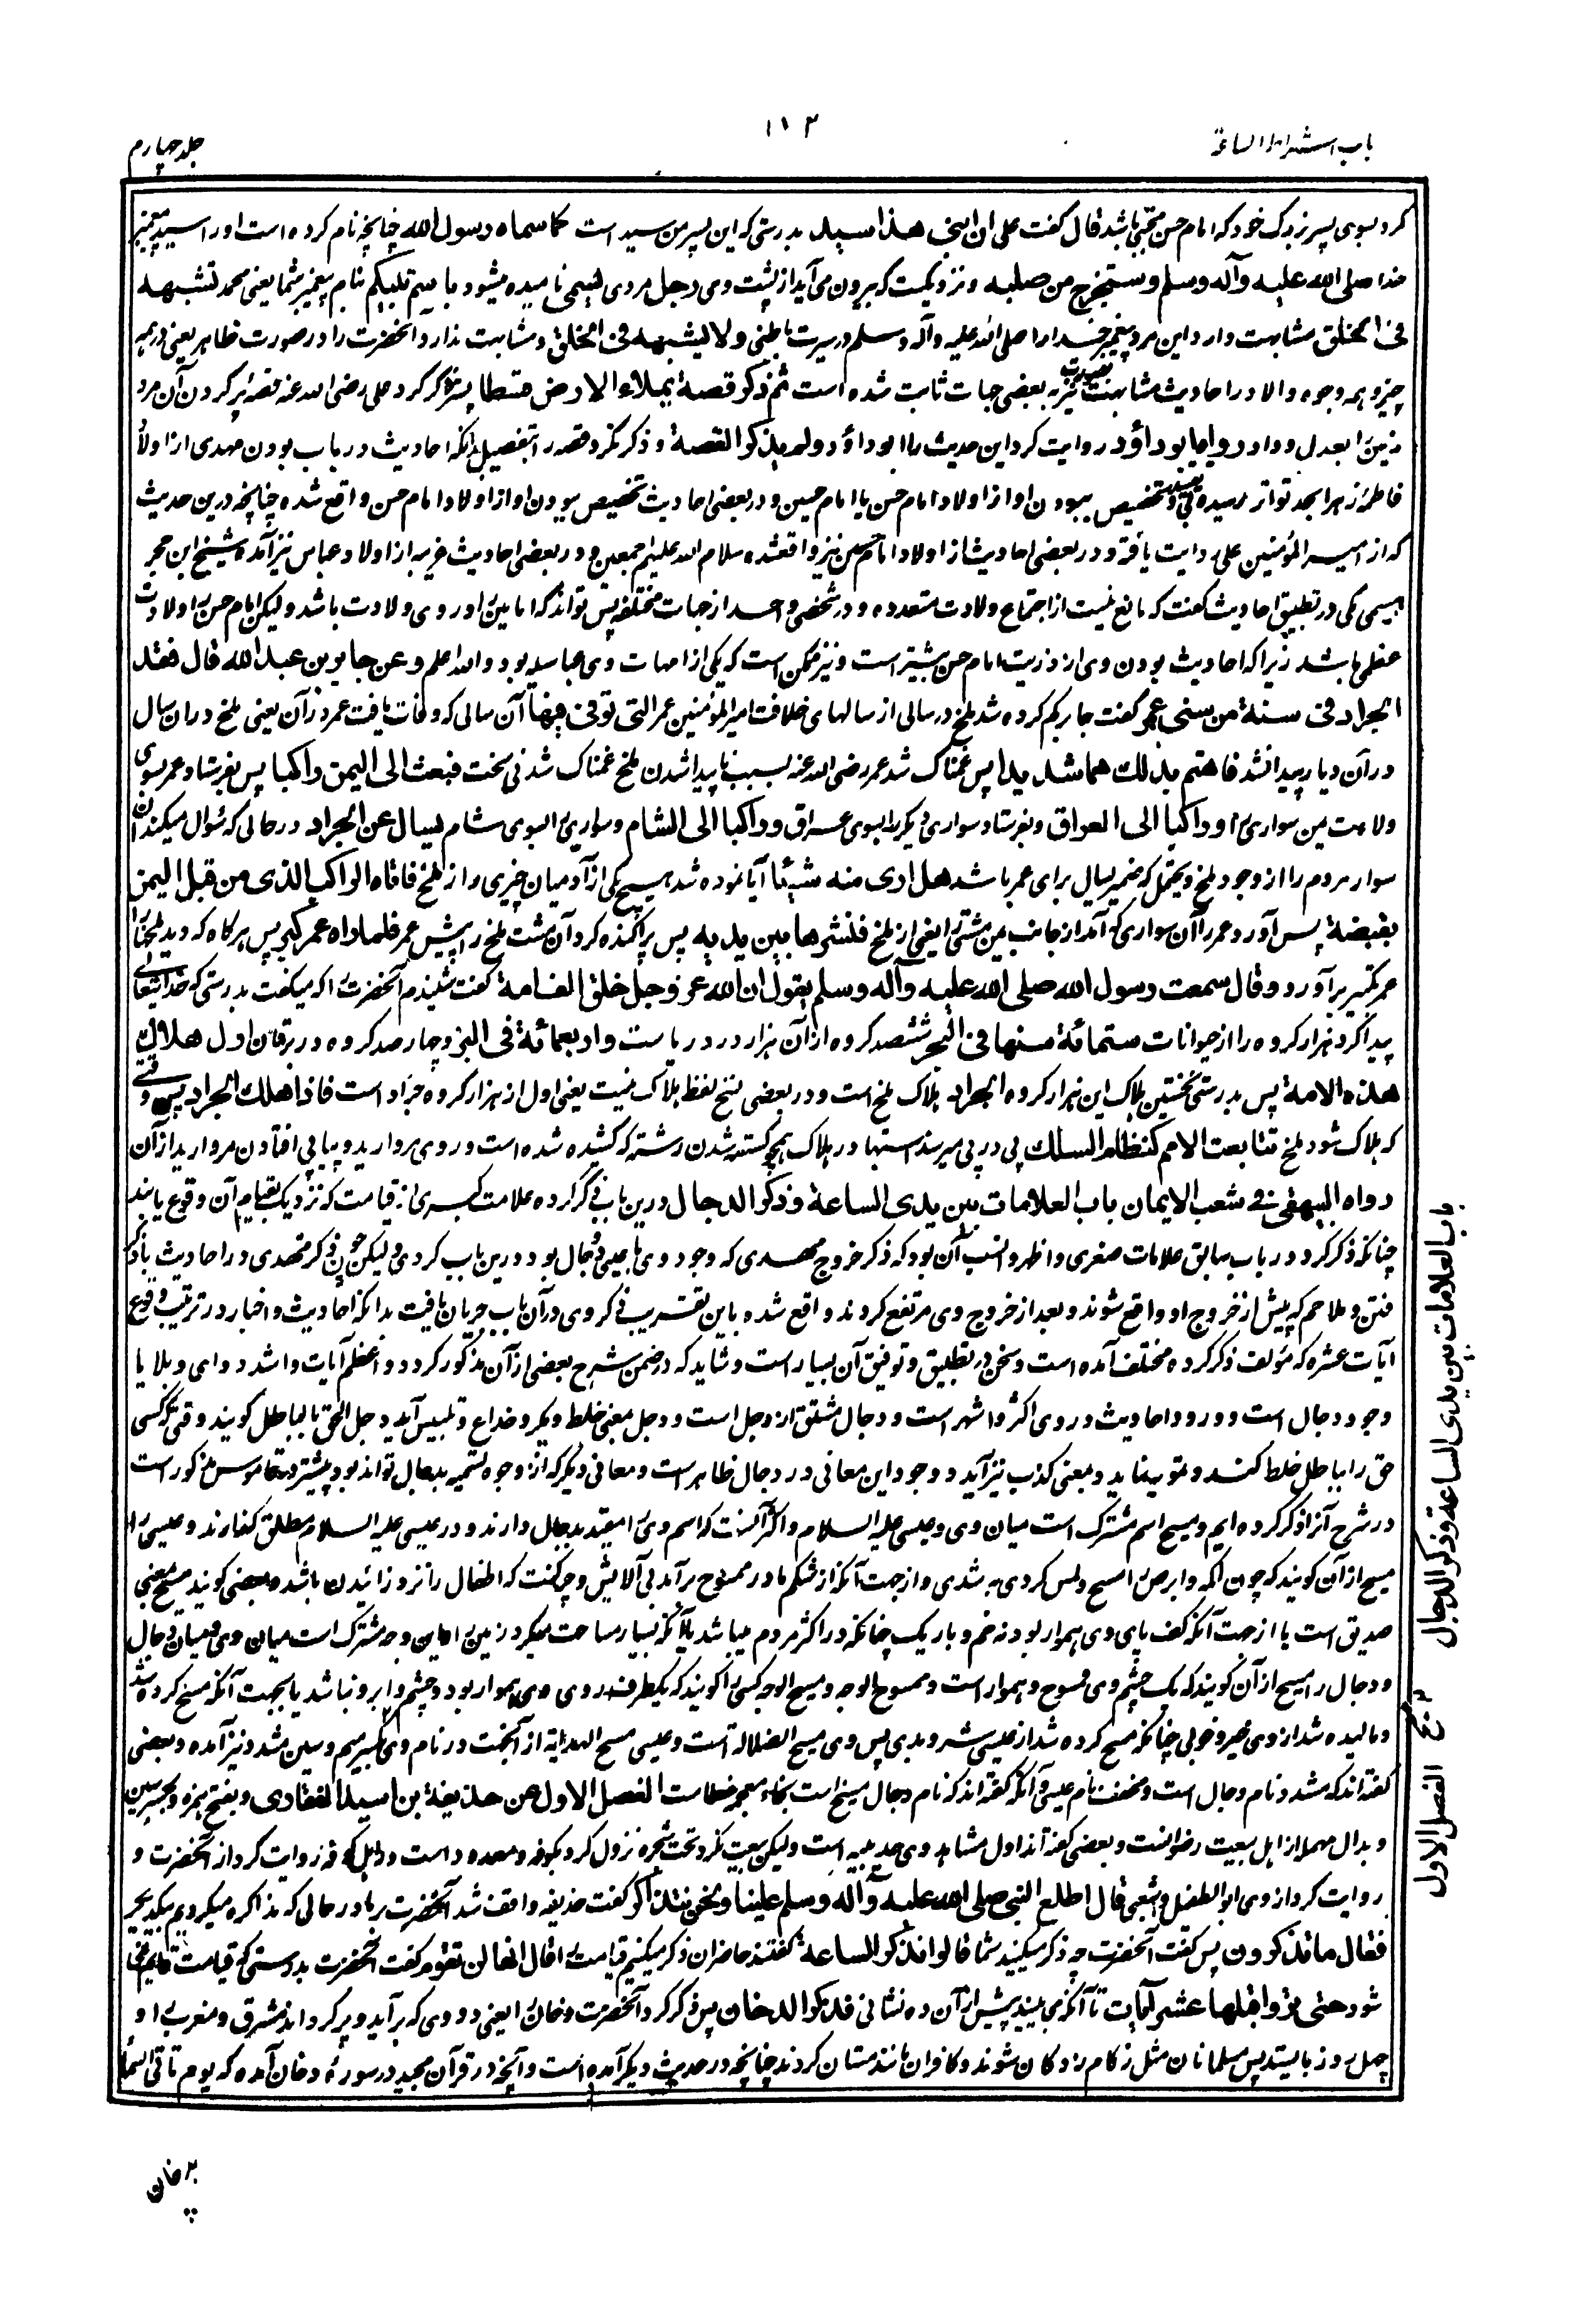 باب اشراط الساعة
۱۱۲
جلد چهارم
کرد بسوی پسر بزرگ خود که امام حسن مجتبی باشد قال گفت علی ان ابنی هذا سید بدرستی که این پسر من سید است کما سماه رسول الله چنانچه نام کرده است او را سید پیغمبر
خدا صلی الله علیه وآله وسلم وسیخرج من صلبه و نزدیکست که بیرون می آید از پشت وی رجل مردی یسمی نامیده میشود باسم نبیکم بنام پیغمبر شما یعنی محمد تشبهه
فی الخلق مشابهت دارد این مرد پیغمبر خدا را صلی الله علیه وآله وسلم در سیرت باطنی ولا یشبهه فی الخلق و مشابهت ندارد آنحضرت را در صورت ظاهر یعنی در همه
چیز و همه وجوه والا در احادیث مشابهت صورت نیز به بعضی جهات ثابت شده است ثم ذکر قصة یملاء الارض قسطا پستر ذکر کرد علی رضی الله عنه قصه پر کردن آن مرد
زمین را بعدل و داد رواه ابو داؤد روایت کرد این حدیث را ابو داؤد ولم یذکر القصة و ذکر نکرد قصه را بتفصیل بدانکه احادیث در باب بودن مهدی از اولاد
فاطمه زهرا بحد تواتر رسیده و تخصیص ببودن او از اولاد امام حسن یا امام حسین و در بعضی احادیث تخصیص ببودن او از اولاد امام حسن واقع شده چنانچه درین حدیث
که از امیر المؤمنین علی روایت یافته و در بعضی احادیث از اولاد امام حسین نیز واقعشده سلام الله علیهم اجمعین و در بعضی احادیث غریبه از اولاد عباس نیز آمده شیخ ابن حجر
هیتمی مکی در تطبیق احادیث گفت که مانع نیست از اجتماع ولادت متعدده در شخصی واحد از جهات مختلفه پس تواند که امامین را در وی ولادت باشد ولیکن امام حسن را ولادت
عظمی باشد زیرا که احادیث بودن وی از ذریت امام حسن بیشتر است و نیز ممکن است که یکی از امهات وی عباسیه بود والله اعلم وعن جابر بن عبد الله قال فقد
الجراد فی سنة من سنی عمر گفت جابر کم کرده شد ملخ در سالی از سالهای خلافت امیر المؤمنین عمر التی توفی فیها آن سالی که وفات یافت عمر در آن یعنی ملخ در ان سال
در آن دیار پیدا نشد فاهتم بذلک هما شدیدا پس غمناک شد عمر رضی الله عنه بسبب ناپیدا شدن ملخ غمناک شدنی سخت فبعث الی الیمن راکبا پس بفرستاد عمر بسوی
ولایت یمن سواری را وراکبا الی العراق و بفرستاد سواری دیگر را بسوی عراق وراکبا الی الشام و سواری را بسوی شام یسال عن الجراد در حالی که سؤال میکند آن
سوار مردم را از وجود ملخ و یحتمل که ضمیر یسال برای عمر باشد هل اری منه شیئا آیا نموده شد هیچ یکی از آدمیان چیزی را از ملخ فاتاه الراکب الذی من قبل الیمن
بقبضة پس آورد عمر را آن سواری که آمد از جانب یمن مشتی را یعنی از ملخ فنثرها بین یدیه پس پراکنده کرد آن مشت ملخ را پیش عمر فلما راه عمر کبر پس هر گاه که دید ملخ را
عمر تکبیر برآورد وقال سمعت رسول الله صلی الله علیه وآله وسلم یقول ان الله عز وجل خلق الف امة گفت شنیدم آنحضرت را که میگفت بدرستی که خدا تعالی
پیدا کرد هزار گروه را از حیوانات ستمائة منها فی البحر ششصد گروه از آن هزار در دریاست واربعمائة فی البر و چهار صد گروه در بر فان اول هلاک
هذه الامة پس بدرستی نخستین هلاک این هزار گروه الجراد هلاک ملخ است و در بعضی نسخ لفظ هلاک نیست یعنی اول از هزار گروه جراد است فاذا هلک الجراد پس وقتی
که هلاک شود ملخ تتابعت الامم کنظام السلک پی در پی میرسند امتها در هلاک همچو گسسته شدن رشته که کشیده شده است در وی مروارید و پیاپی افتادن مروارید از آن
رواه البیهقی فی شعب الایمان باب العلامات بین یدی الساعة وذکر الدجال درین باب ذکر کرده علامت کبری از قیامت که نزدیک بقیام آن وقوع یابند
چنانکه ذکر کرد در باب سابق علامات صغری و اظهر و انسب آن بود که ذکر خروج مهدی که وجود وی با عیسی و دجال بود درین باب کردی ولیکن چون ذکر مهدی در احادیث با ذکر
فتن و ملاحم که پیش از خروج او واقع شوند و بعد از خروج وی مرتفع گردند واقع شده باین تقریب ذکر وی در آن باب جریان یافت بدانکه احادیث و اخبار در ترتیب وقوع
آیات عشره که مؤلف ذکر کرده مختلف آمده است و سخن در تطبیق و توفیق آن بسیار است و شاید که در ضمن شرح بعضی از آن مذکور گردد و اعظم آیات و اشد دواهی و بلایا
وجود دجال است و ورود احادیث در وی اکثر و اشهر است و دجال مشتق از دجل است و دجل بمعنی خلط و مکر و خداع و تلبیس آید دجل الحق بالباطل گویند وقتی که کسی
حق را بباطل خلط کند و تمویه نماید و بمعنی کذب نیز آید و وجود این معانی در دجال ظاهر است و معانی دیگر که از وجوه تسمیه بدجال تواند بود بیشتر در قاموس مذکور است
در شرح آنرا ذکر کرده ایم و مسیح اسم مشترک است میان وی و عیسی علیه السلام و اکثر آنست که اسم وی را مقید بدجال دارند و در عیسی علیه السلام مطلق گذارند و عیسی را
مسیح از آن گویند که چون اکمه و ابرص را مسح و لمس کردی به شدی و از جهت آنکه از شکم مادر ممسوح برآمد بی آلایش و چرکنت که اطفال را نزد زائیدن باشد و بعضی گویند مسیح بمعنی
صدیق است یا از جهت آنکه کف پای وی هموار بود نه خم و باریک چنانکه در اکثر مردم میباشد یا آنکه بسیار مساحت میکرد زمین را و این وجه مشترک است میان وی و میان دجال
و دجال را مسیح از آن گویند که یک چشم وی ممسوح و هموار است و ممسوح الوجه و مسیح الوجه کسی را گویند که یکطرف روی وی هموار بود و چشم و ابرو نباشد یا بجهت آنکه مسح کرده شد
و مالیده شد از وی خیر و خوبی چنانکه مسح کرده شد از عیسی شر و بدی پس وی مسیح الضلالة است و عیسی مسیح الهدایة از آنجهت در نام وی بکسر میم و سین مشدد نیز آمده و بعضی
گفته اند که مشدد نام دجال است و مخفف نام عیسی و آنکه گفته اند که نام دجال مسیخ است بخاء معجمه خطاست الفصل الاول عن حذیفة بن اسید الغفاری و بفتح همزه و بکسر سین
و بدال مهمله از اهل بیعت رضوانست و بعضی گفته اند اول مشاهد وی حدیبیه است ولیکن بیعت نکرد تحت شجره نزول کرد بکوفه و معدود است در اهل کوفه روایت کرد از آنحضرت و
روایت کرد از وی ابو الطفیل و شعبی قال اطلع النبی صلی الله علیه وآله وسلم علینا ونحن نتذاکر گفت حذیفه واقف شد آنحضرت بر ما در حالی که مذاکره میکردیم بیکدیگر
فقال ما تذکرون پس گفت آنحضرت چه ذکر میکنید شما قالوا نذکر الساعة گفتند حاضران ذکر میکنیم قیامت را قال انها لن تقوم گفت آنحضرت بدرستی که قیامت قایم نمی
شود حتی تروا قبلها عشر آیات تا آنکه می بینید پیش از آن ده نشانی فذکر الدخان پس ذکر کرد آنحضرت دخان را یعنی دودی که برآید و پر گرداند مشرق و مغرب را و
چهل روز بایستد پس مسلمانان مثل زکام زدگان شوند و کافران مانند مستان گردند چنانچه در حدیث دیگر آمده است و آنچه در قرآن مجید در سورۀ دخان آمده که یوم تاتی السماء
باب العلامات بین یدی الساعة وذکر الدجال
الفصل الاول
بدخان